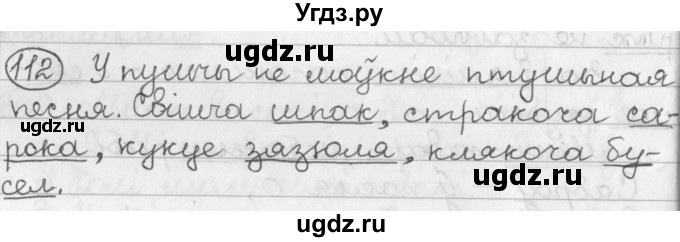 Угдз.ру
112 У пушчы не моўкне птушыная
песня. Свішча шпак, стракоча са-
рока, кукуе зязюля, клякоча бу-
сел.
ugdz.ru
ugdz.ru
ugdz.ru
ugdz.ru
ugdz.ru